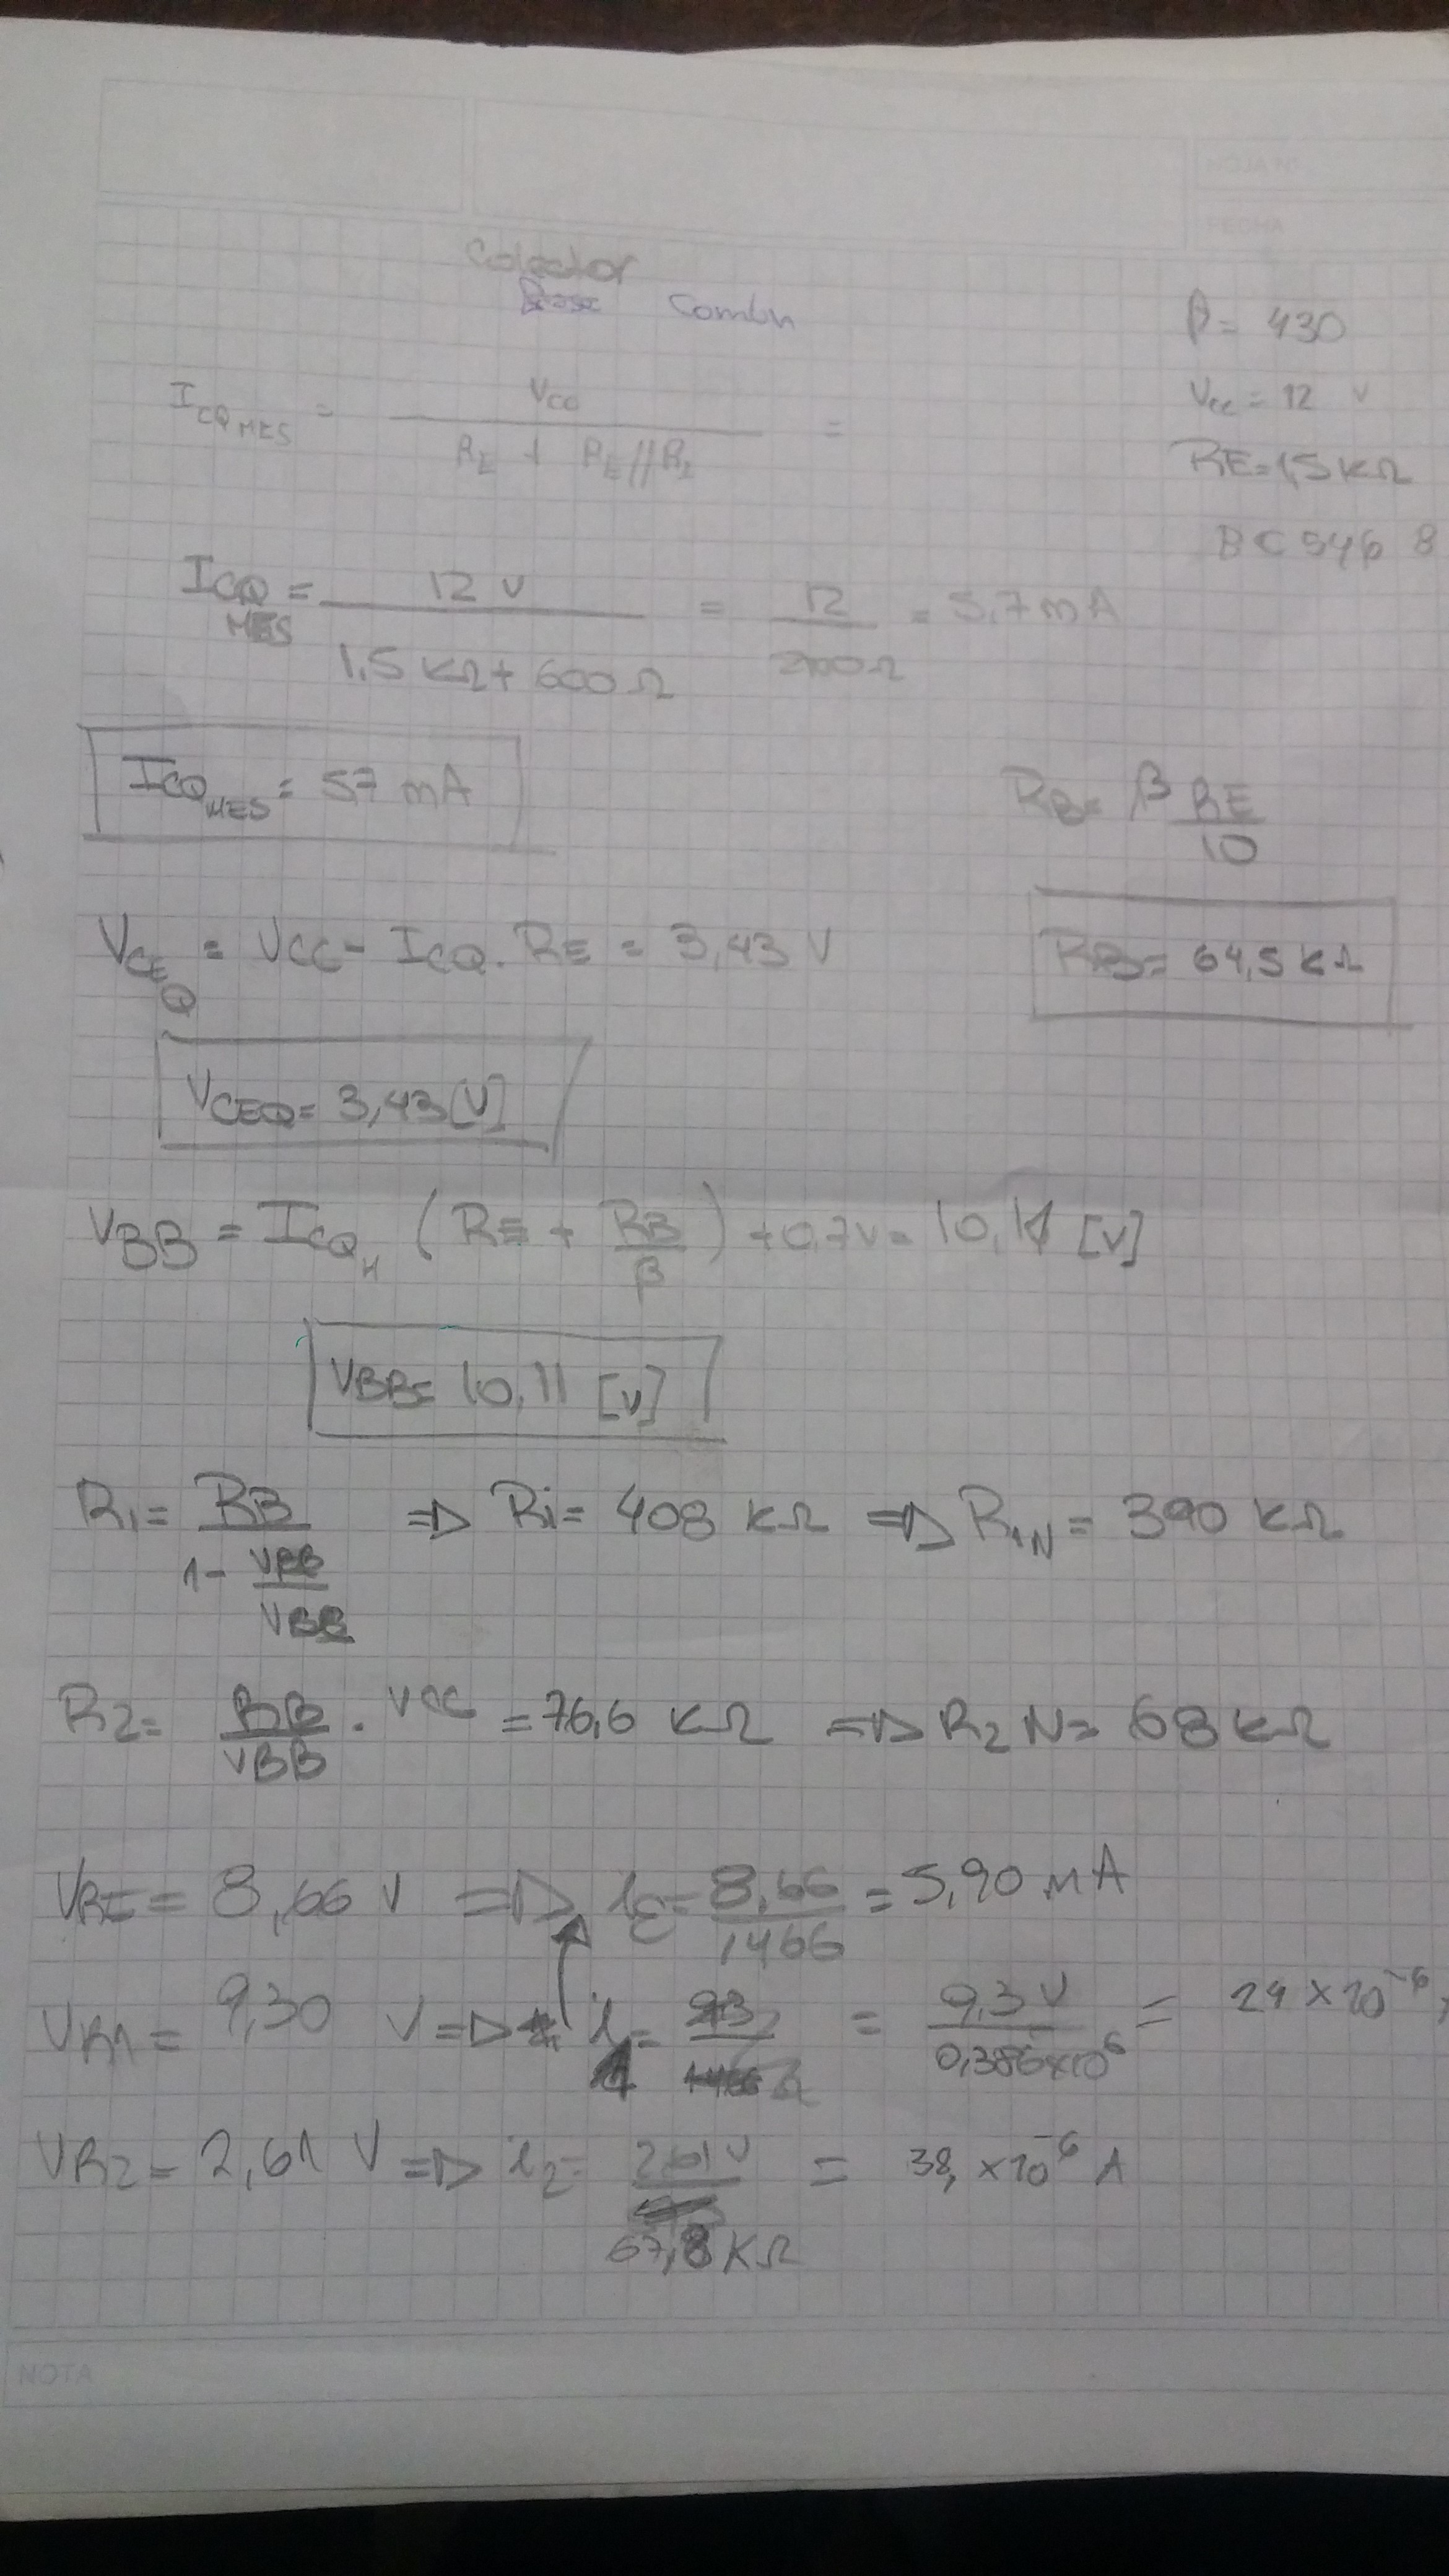 HOJA Nº
FECHA
Colector
Base Común
β = 430
I CQ MES = Vcc / RE + RE//RL =
Vcc = 12 V
RE = 1,5 KΩ
BC 546 B
ICQ MES = 12 V / 1,5 KΩ + 600 Ω = 12 / 2100 Ω = 5,7 mA
ICQ MES = 5,7 mA
RB = β RE / 10
VCEQ = VCC - ICQ . RE = 3,43 V
RB = 64,5 KΩ
VCEQ = 3,43 [V]
VBB = ICQ M (RE + RB / β) + 0,7 V = 10,11 [V]
VBB = 10,11 [V]
R1 = RB / 1 - VBB / VBB => R1 = 408 KΩ => R1N = 390 KΩ
R2 = RB / VBB . VCC = 76,6 KΩ => R2N = 68 KΩ
VRE = 8,66 V => iE = 8,66 / 1466 = 5,90 mA
VR1 = 9,30 V => i1 = = 9,3 V / 0,386x10^6 = 24 x 10^-6
VR2 = 2,61 V => i2 = 2,61 V / 67,8 KΩ = 38, x10^-6 A
NOTA